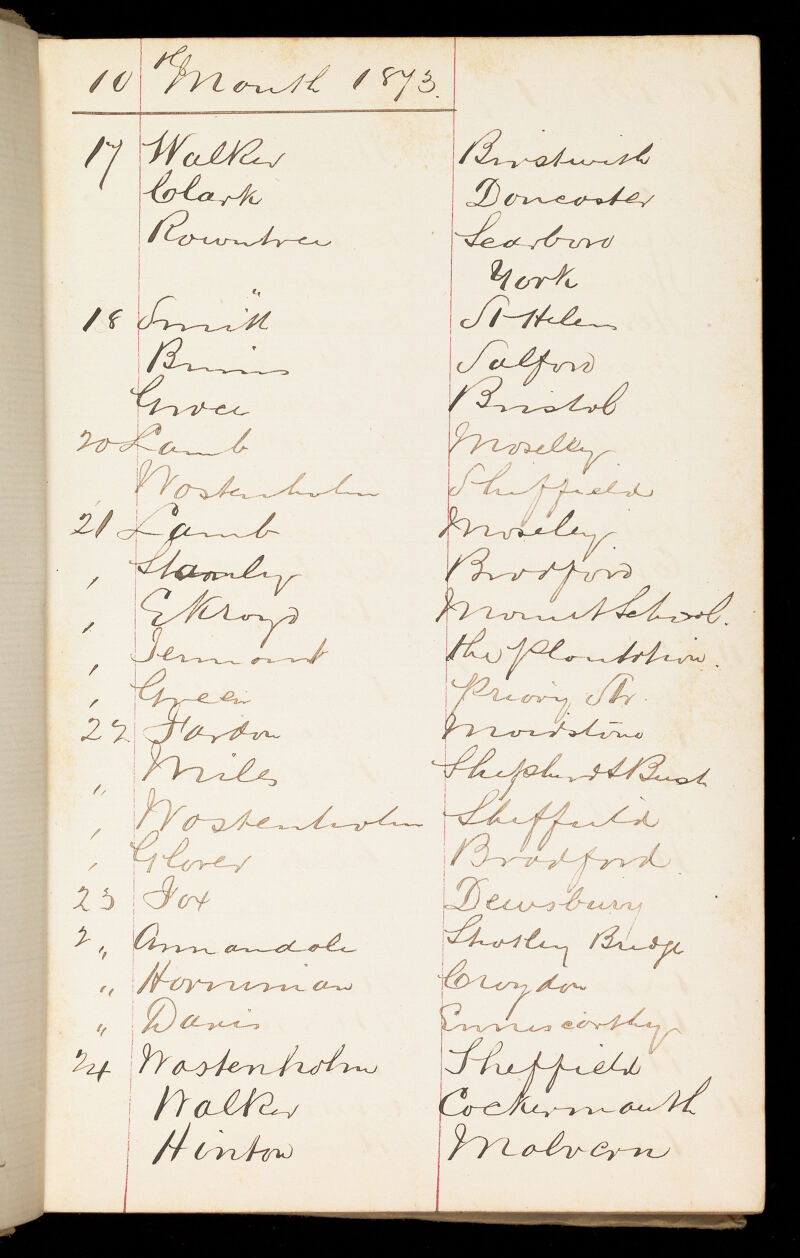 10th Month 1873.
17 Walker Birstwith
Clark Doncaster
Rowntree Scarboro
" York
18 Smith St Helens
Binns Salford
Grace Bristol
20 Lamb Moseley
Wostenholm Sheffield
21 Lamb Moseley
, Stanley Bradford
, Ekroyd Mount School.
, the Plantation.
, Green Priory Str.
22 Fardon Maidstone
" Miles Shepherds Bush
, Wostenholm Sheffield
, Glover Bradford
23 Fox Dewsbury
2 " Annandale Shotley Bridge
" Horniman Croydon
" Davis Enniscorthy
24 Wostenholm Sheffield
Walker Cockermouth
Hinton Malvern